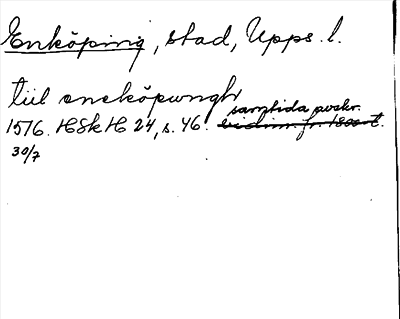 Enköping, stad, Upps. l.
tiil eneköpungh
samtida avskr.
1516. HSkH 24, s. 46. vidim. fr. 1800-t.
30/7